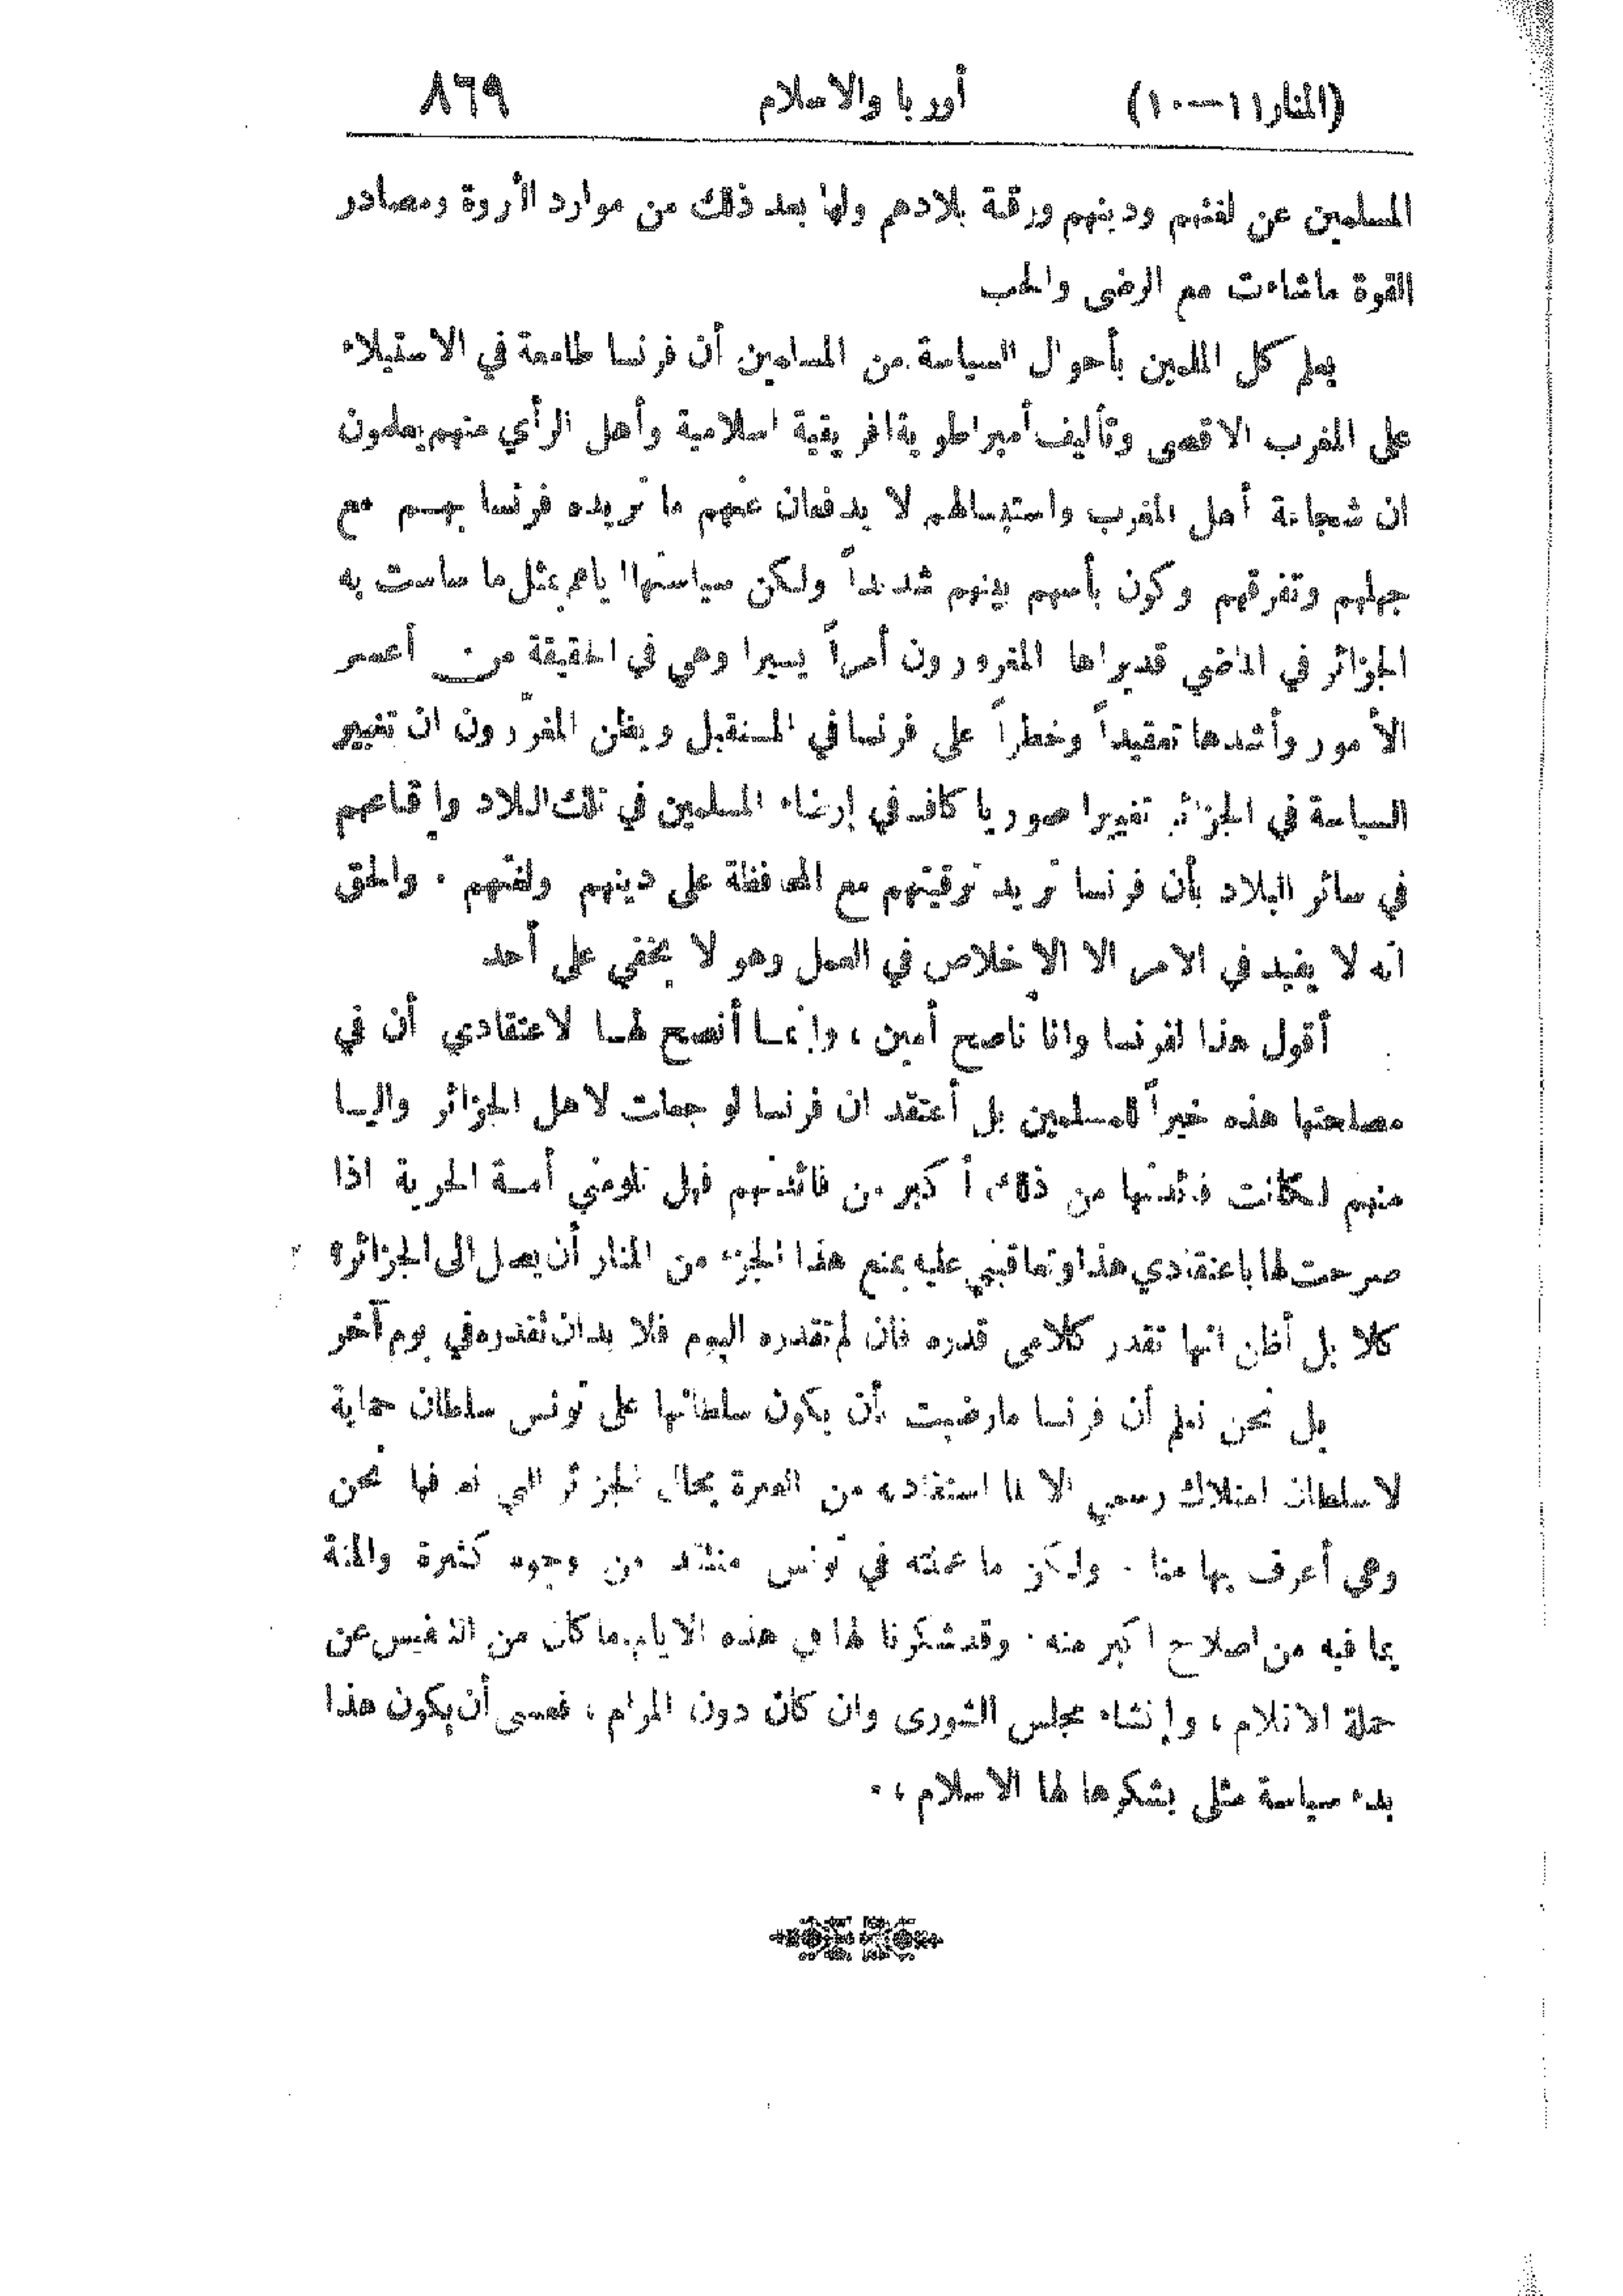 (المنار ١١—١٠) أوربا والاسلام ٨٦٩
المسلمين عن لغتهم ودينهم ورقبة بلادهم ولها بعد ذلك من موارد الثروة ومصادر
القوة ماشاءت مع الرضى والحب
يعلم كل الملمين بأحوال السياسة من المسلمين أن فرنسا طامعة في الاستيلاء
على المغرب الاقصى وتأليف أمبراطورية افريقية اسلامية وأهل الرأي منهم يعلمون
ان شجاعة أهل المغرب واستبسالهم لا يدفعان عنهم ما تريده فرنسا بهم مع
جهلهم وتفرقهم وكون بأسهم بينهم شديداً ولكن سياستها اياهم بمثل ما ساست به
الجزائر في الماضي قد يراها المغرورون أمراً يسيرا وهي في الحقيقة من أعسر
الأمور وأشدها تعقيداً وخطراً على فرنسا في المستقبل ويظن المغرّرون ان تغيير
السياسة في الجزائر تغييرا صوريا كاف في إرضاء المسلمين في تلك البلاد وإقناعهم
في سائر البلاد بأن فرنسا تريد ترقيتهم مع المحافظة على دينهم ولغتهم . والحق
انه لا يفيد في الامر الا الإخلاص في العمل وهو لا يخفى على أحد
أقول هذا لفرنسا وانا ناصح أمين ، وإنما أنصح لها لاعتقادي أن في
مصلحتها هذه خيراً للمسلمين بل أعتقد ان فرنسا لو جعلت لاهل الجزائر واليا
منهم لكانت فائدتها من ذلك أكبر من فائدتهم فهل تلومني أمة الحرية اذا
صرحت لها باعتقادي هذا وتعاقبني عليه بمنع هذا الجزء من المنار أن يصل الى الجزائر؟
كلا بل أظن انها تقدر كلامي قدره فان لم تقدره اليوم فلا بد ان تقدره في يوم آخر
بل نحن نعلم أن فرنسا مارضيت بأن يكون سلطانها على تونس سلطان حماية
لاسلطان امتلاك رسمي الا لما استفادته من العبرة بحال الجزائر التي نعرفها نحن
وهي أعرف بها منا . ولكن ما عملته في تونس منتقد من وجوه كثيرة والمنة
بما فيه من اصلاح اكبر منه . وقد شكرنا لها في هذه الايام ما كان من التنفيس عن
حملة الاقلام ، وإنشاء مجلس الشورى وان كان دون المرام ، فعسى أن يكون هذا
بدء سياسة مثلى يشكرها لها الاسلام ، .